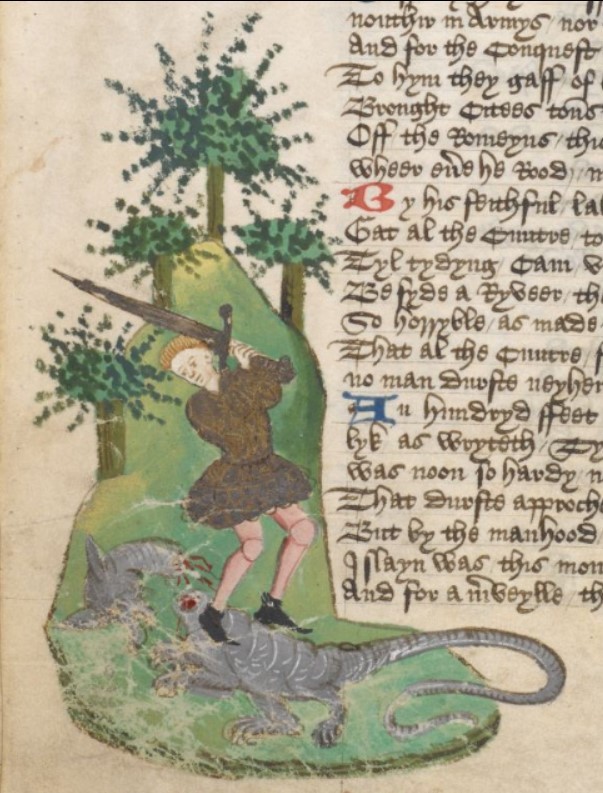 nouthir in Armys / nor
And for the Conquest
To hym they gaff / of
Brought Citees touns
Off the Romeyns / thi
wheer evir he Rood /
By his feithful la
Gat al the Cuntre / to
Tyl tydyng Cam
Be syde a Ryveer / th
So horryble / as made
That al the Cuntre /
no man durste neyher
An hundryd ffeet
lyk as wryteth / Ty
was noon so hardy / n
That durste approche
But by the manhood /
Islayn was this mon
And for a mveylle / th